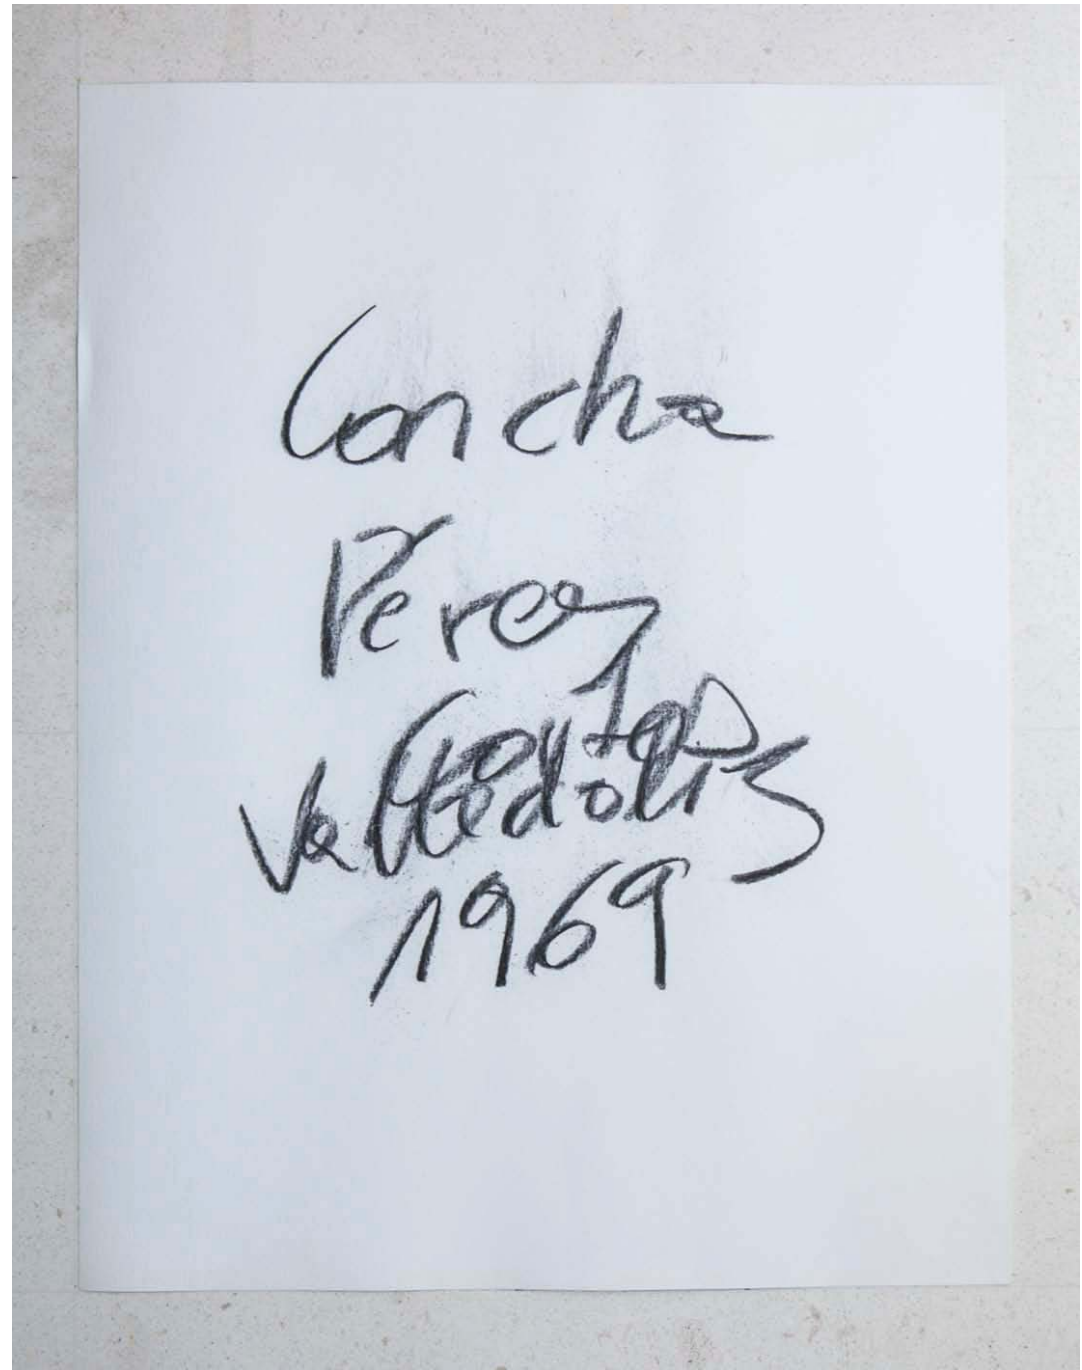 Concha
Pérez
Valladolid
1969